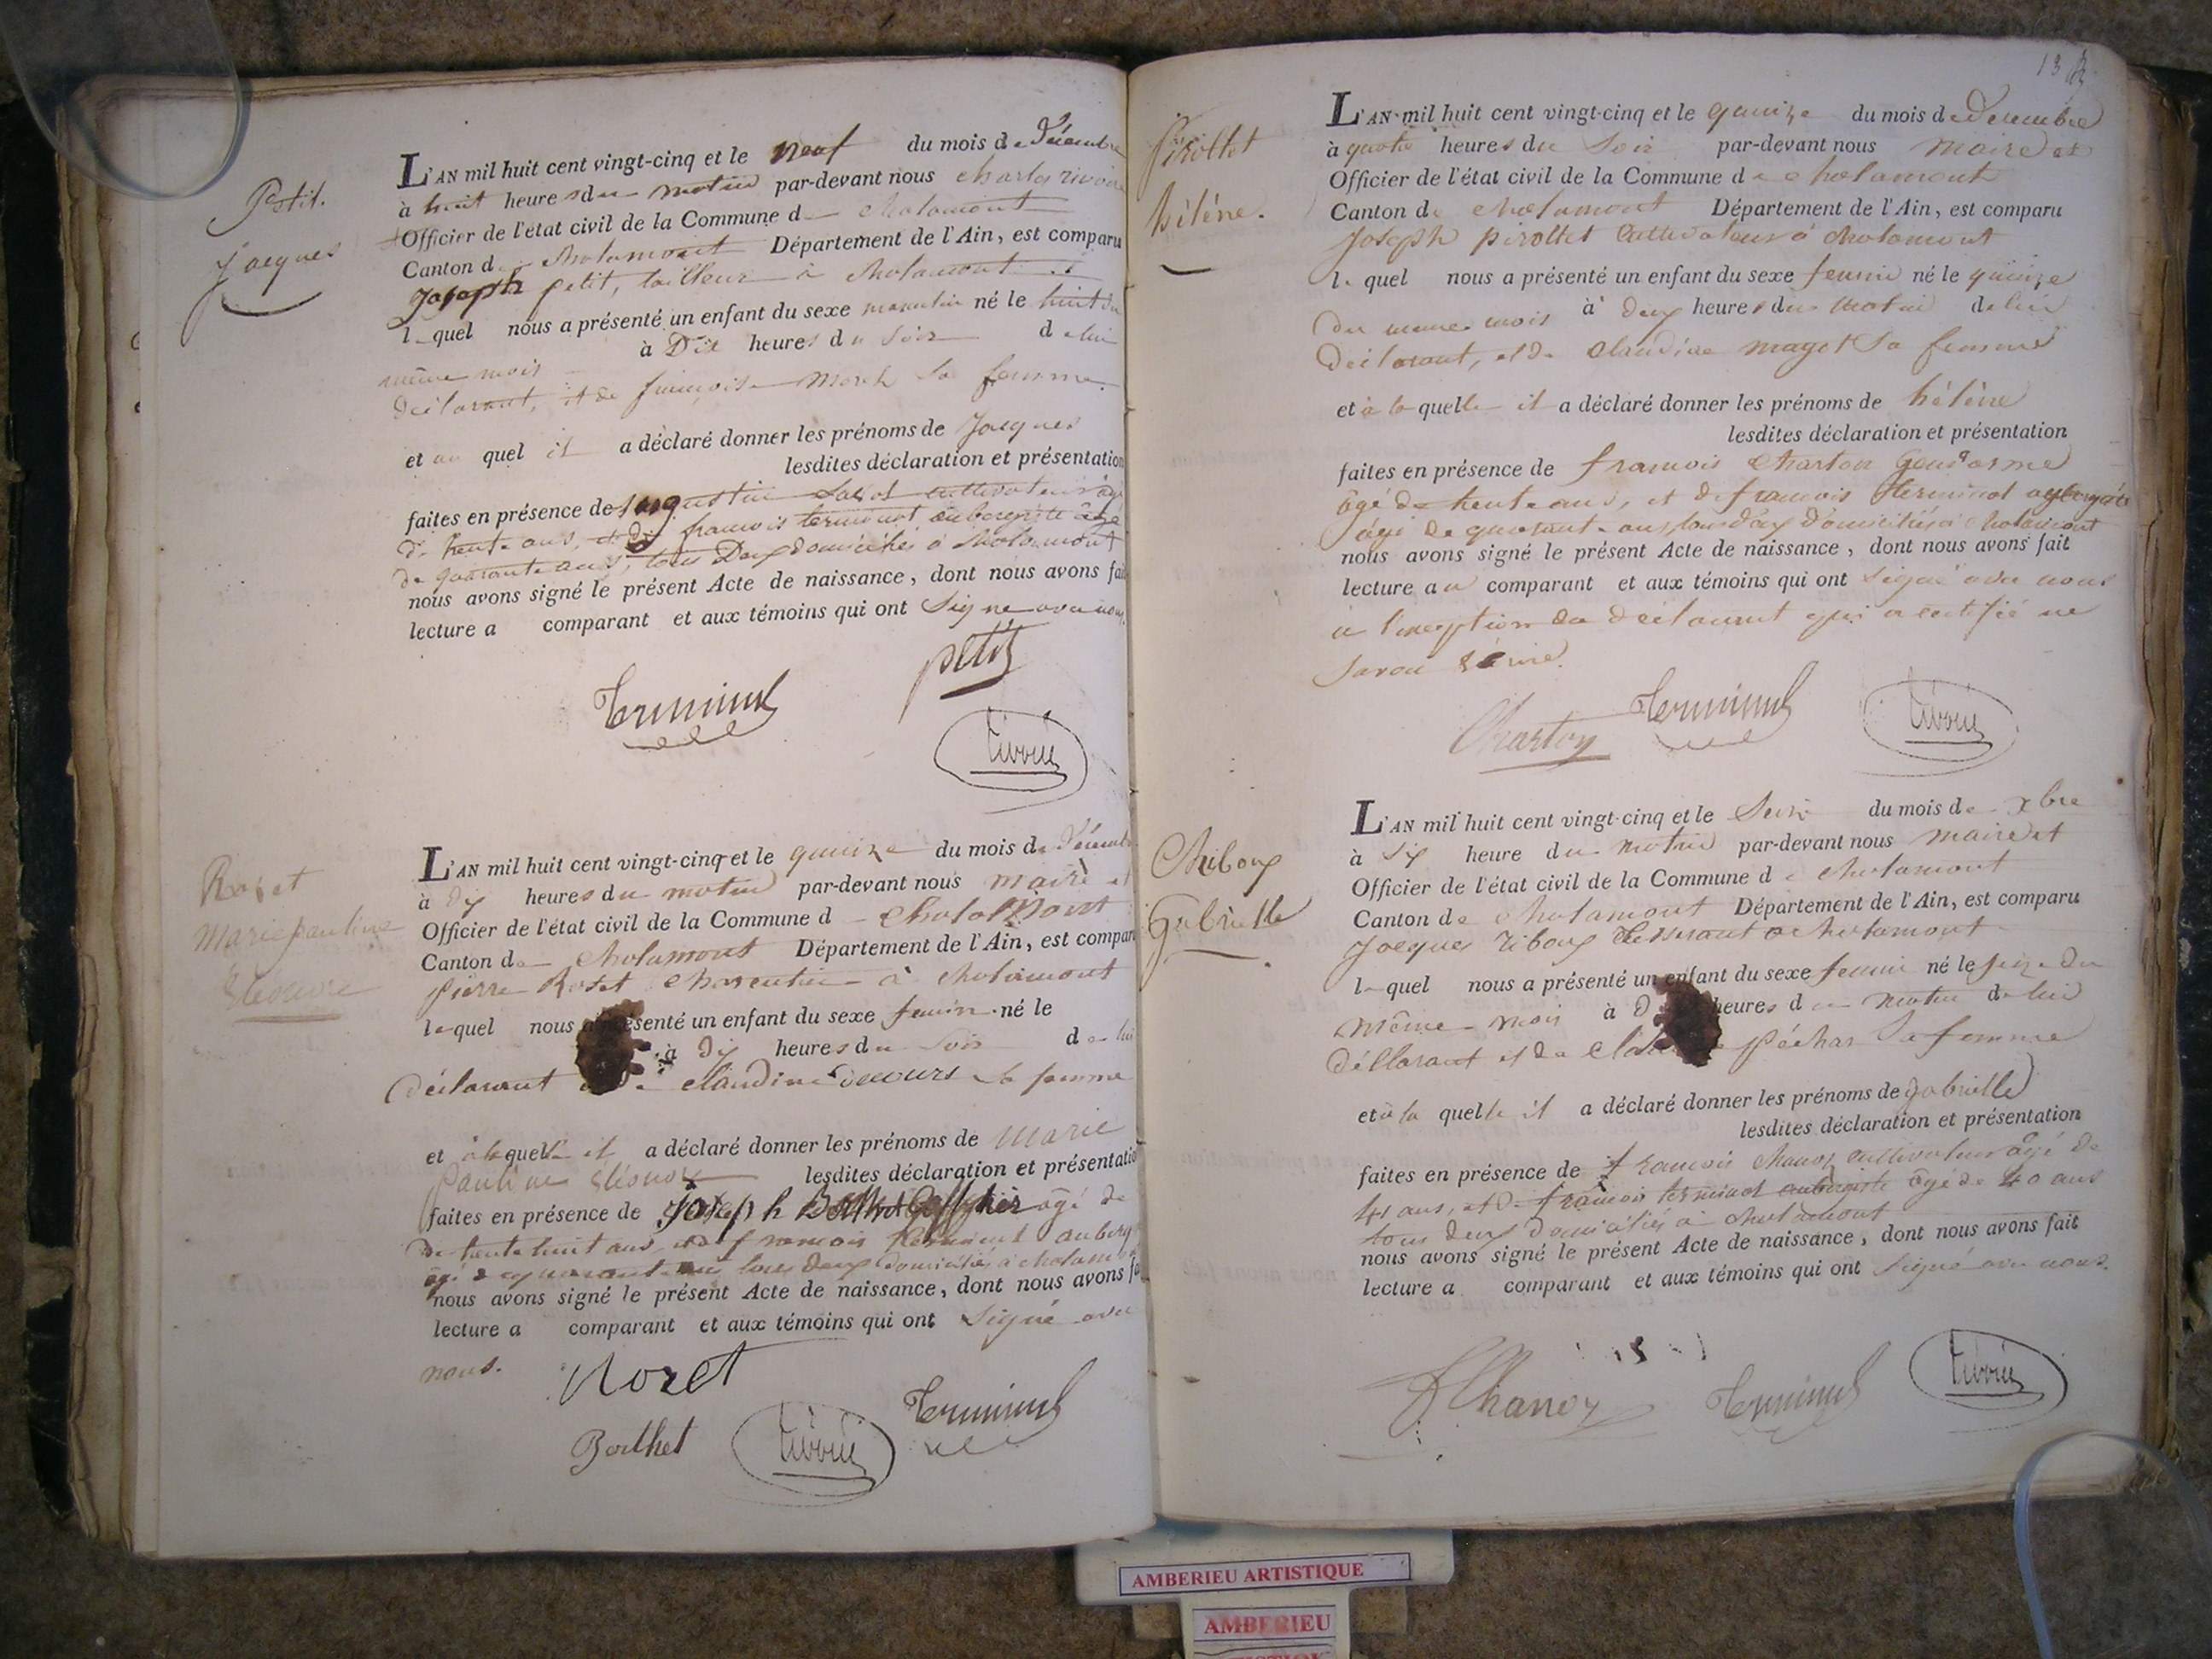 Petit.
Jacques
L'AN mil huit cent vingt-cinq et le neuf du mois de Décembre
à huit heures du matin par-devant nous charles rivoire
Officier de l'état civil de la Commune de chalamont
Canton de chalamont Département de l'Ain, est comparu
Joseph petit, tailleur à chalamont
lequel nous a présenté un enfant du sexe masculin né le huit du
même mois à Dix heures du soir de lui
déclarant, et de françoise morel sa femme.
et au quel il a déclaré donner les prénoms de Jacques
lesdites déclaration et présentation
faites en présence de cultivateur âgé
de trente ans, et de françois terminet aubergiste âgé
de quarante ans, tous Deux domiciliés à chalamont
nous avons signé le présent Acte de naissance, dont nous avons fait
lecture a comparant et aux témoins qui ont signé avec nous.
petit
Terminet
rivoire
Rozet
Marie pauline
Eléonore
L'AN mil huit cent vingt-cinq et le quinze du mois de Décembre
à dix heures du matin par-devant nous maire et
Officier de l'état civil de la Commune d chalamont
Canton de chalamont Département de l'Ain, est comparu
pierre Rozet à chalamont
lequel nous a présenté un enfant du sexe féminin né le
à dix heures du soir de lui
déclarant claudine sa femme
et à laquelle il a déclaré donner les prénoms de Marie
Pauline Eléonore lesdites déclaration et présentation
faites en présence de Joseph Berthet âgé de
de trente huit ans, et de francois terminet auberg
âgé de quarante ans tous deux domiciliés à chalam
nous avons signé le présent Acte de naissance, dont nous avons fai
lecture a comparant et aux témoins qui ont signé avec
nous.
Rozet
Terminet
Berthet
rivoire
13
Pirollet
hélène.
L'AN mil huit cent vingt-cinq et le quinze du mois de Decembre
à quatre heures du soir par-devant nous maire et
Officier de l'état civil de la Commune de chalamont
Canton de chalamont Département de l'Ain, est comparu
Joseph pirollet cultivateur à chalamont
lequel nous a présenté un enfant du sexe feminin né le quinze
du meme mois à deux heures du matin de lui
déclarant, et de claudine maget sa femme
et à laquelle il a déclaré donner les prénoms de hélène
lesdites déclaration et présentation
faites en présence de francois charton Gendarme
âgé de trente ans, et de francois terminet aubergiste
âgé de quarante ans tous deux domiciliés à chalamont
nous avons signé le présent Acte de naissance, dont nous avons fait
lecture au comparant et aux témoins qui ont signé avec nous
a l'exception du déclarant qui a certifié ne
savoir écrire.
Charton
Terminet
rivoire
Riboux
Gabrielle
L'AN mil huit cent vingt-cinq et le seize du mois de xbre
à six heure du matin par-devant nous maire et
Officier de l'état civil de la Commune de chalamont
Canton de chalamont Département de l'Ain, est comparu
Jacques Riboux tisserant a chalamont
lequel nous a présenté un enfant du sexe feminin né le seize du
même mois à d heures du matin de lui
déclarant et de péchar sa femme
et à laquelle il a déclaré donner les prénoms de gabrielle
lesdites déclaration et présentation
faites en présence de francois chanoz cultivateur âgé de
41 ans, et de francois terminet aubergiste âgé de 40 ans
tous deux domiciliés à chalamont
nous avons signé le présent Acte de naissance, dont nous avons fait
lecture a comparant et aux témoins qui ont signé avec nous.
Chanoz
Terminet
rivoire
AMBERIEU ARTISTIQUE
AMBERIEU